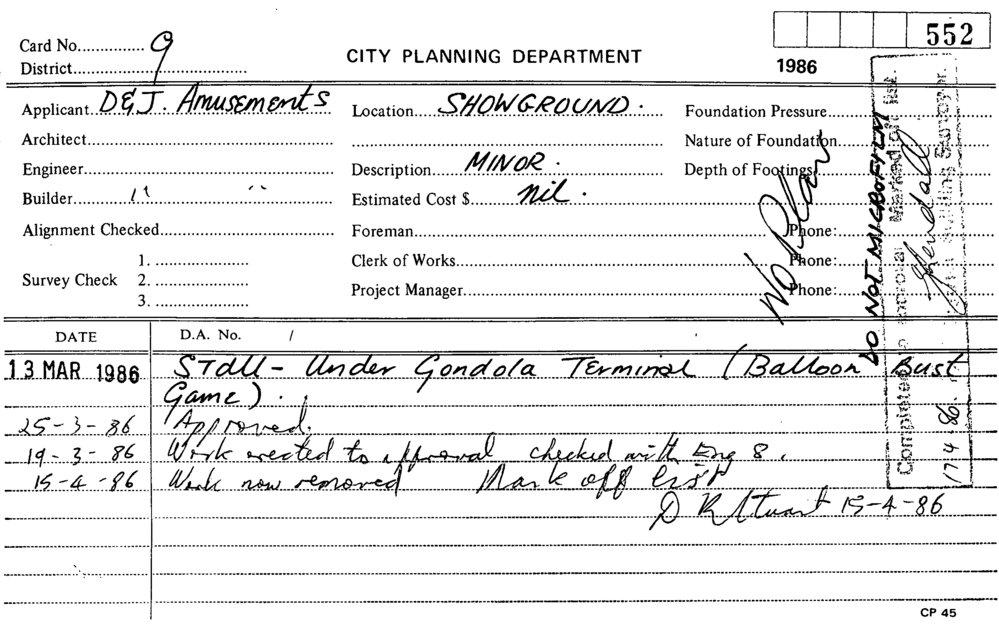 Card No. 9
552
CITY PLANNING DEPARTMENT
District
1986
Applicant D&J. Amusements
Location SHOWGROUND.
Foundation Pressure
Architect
Nature of Foundation
Engineer
Description MINOR.
Depth of Footings
Builder " "
Estimated Cost $ nil.
Alignment Checked
Foreman
Phone:
Survey Check
1.
2.
3.
Clerk of Works
Phone:
Project Manager
Phone:
No Plan
DO NOT MICROFILM
Completed to approval Marked off list.
Building Surveyor.
17 4 86.
DATE
D.A. No. /
13 MAR 1986 Stall - Under Gondola Terminal (Balloon Bust
Game).
25-3-86 Approved.
19-3-86 Work erected to approval checked with Eng 8.
15-4-86 Work now removed Mark off list
D R Stuart 15-4-86
CP 45